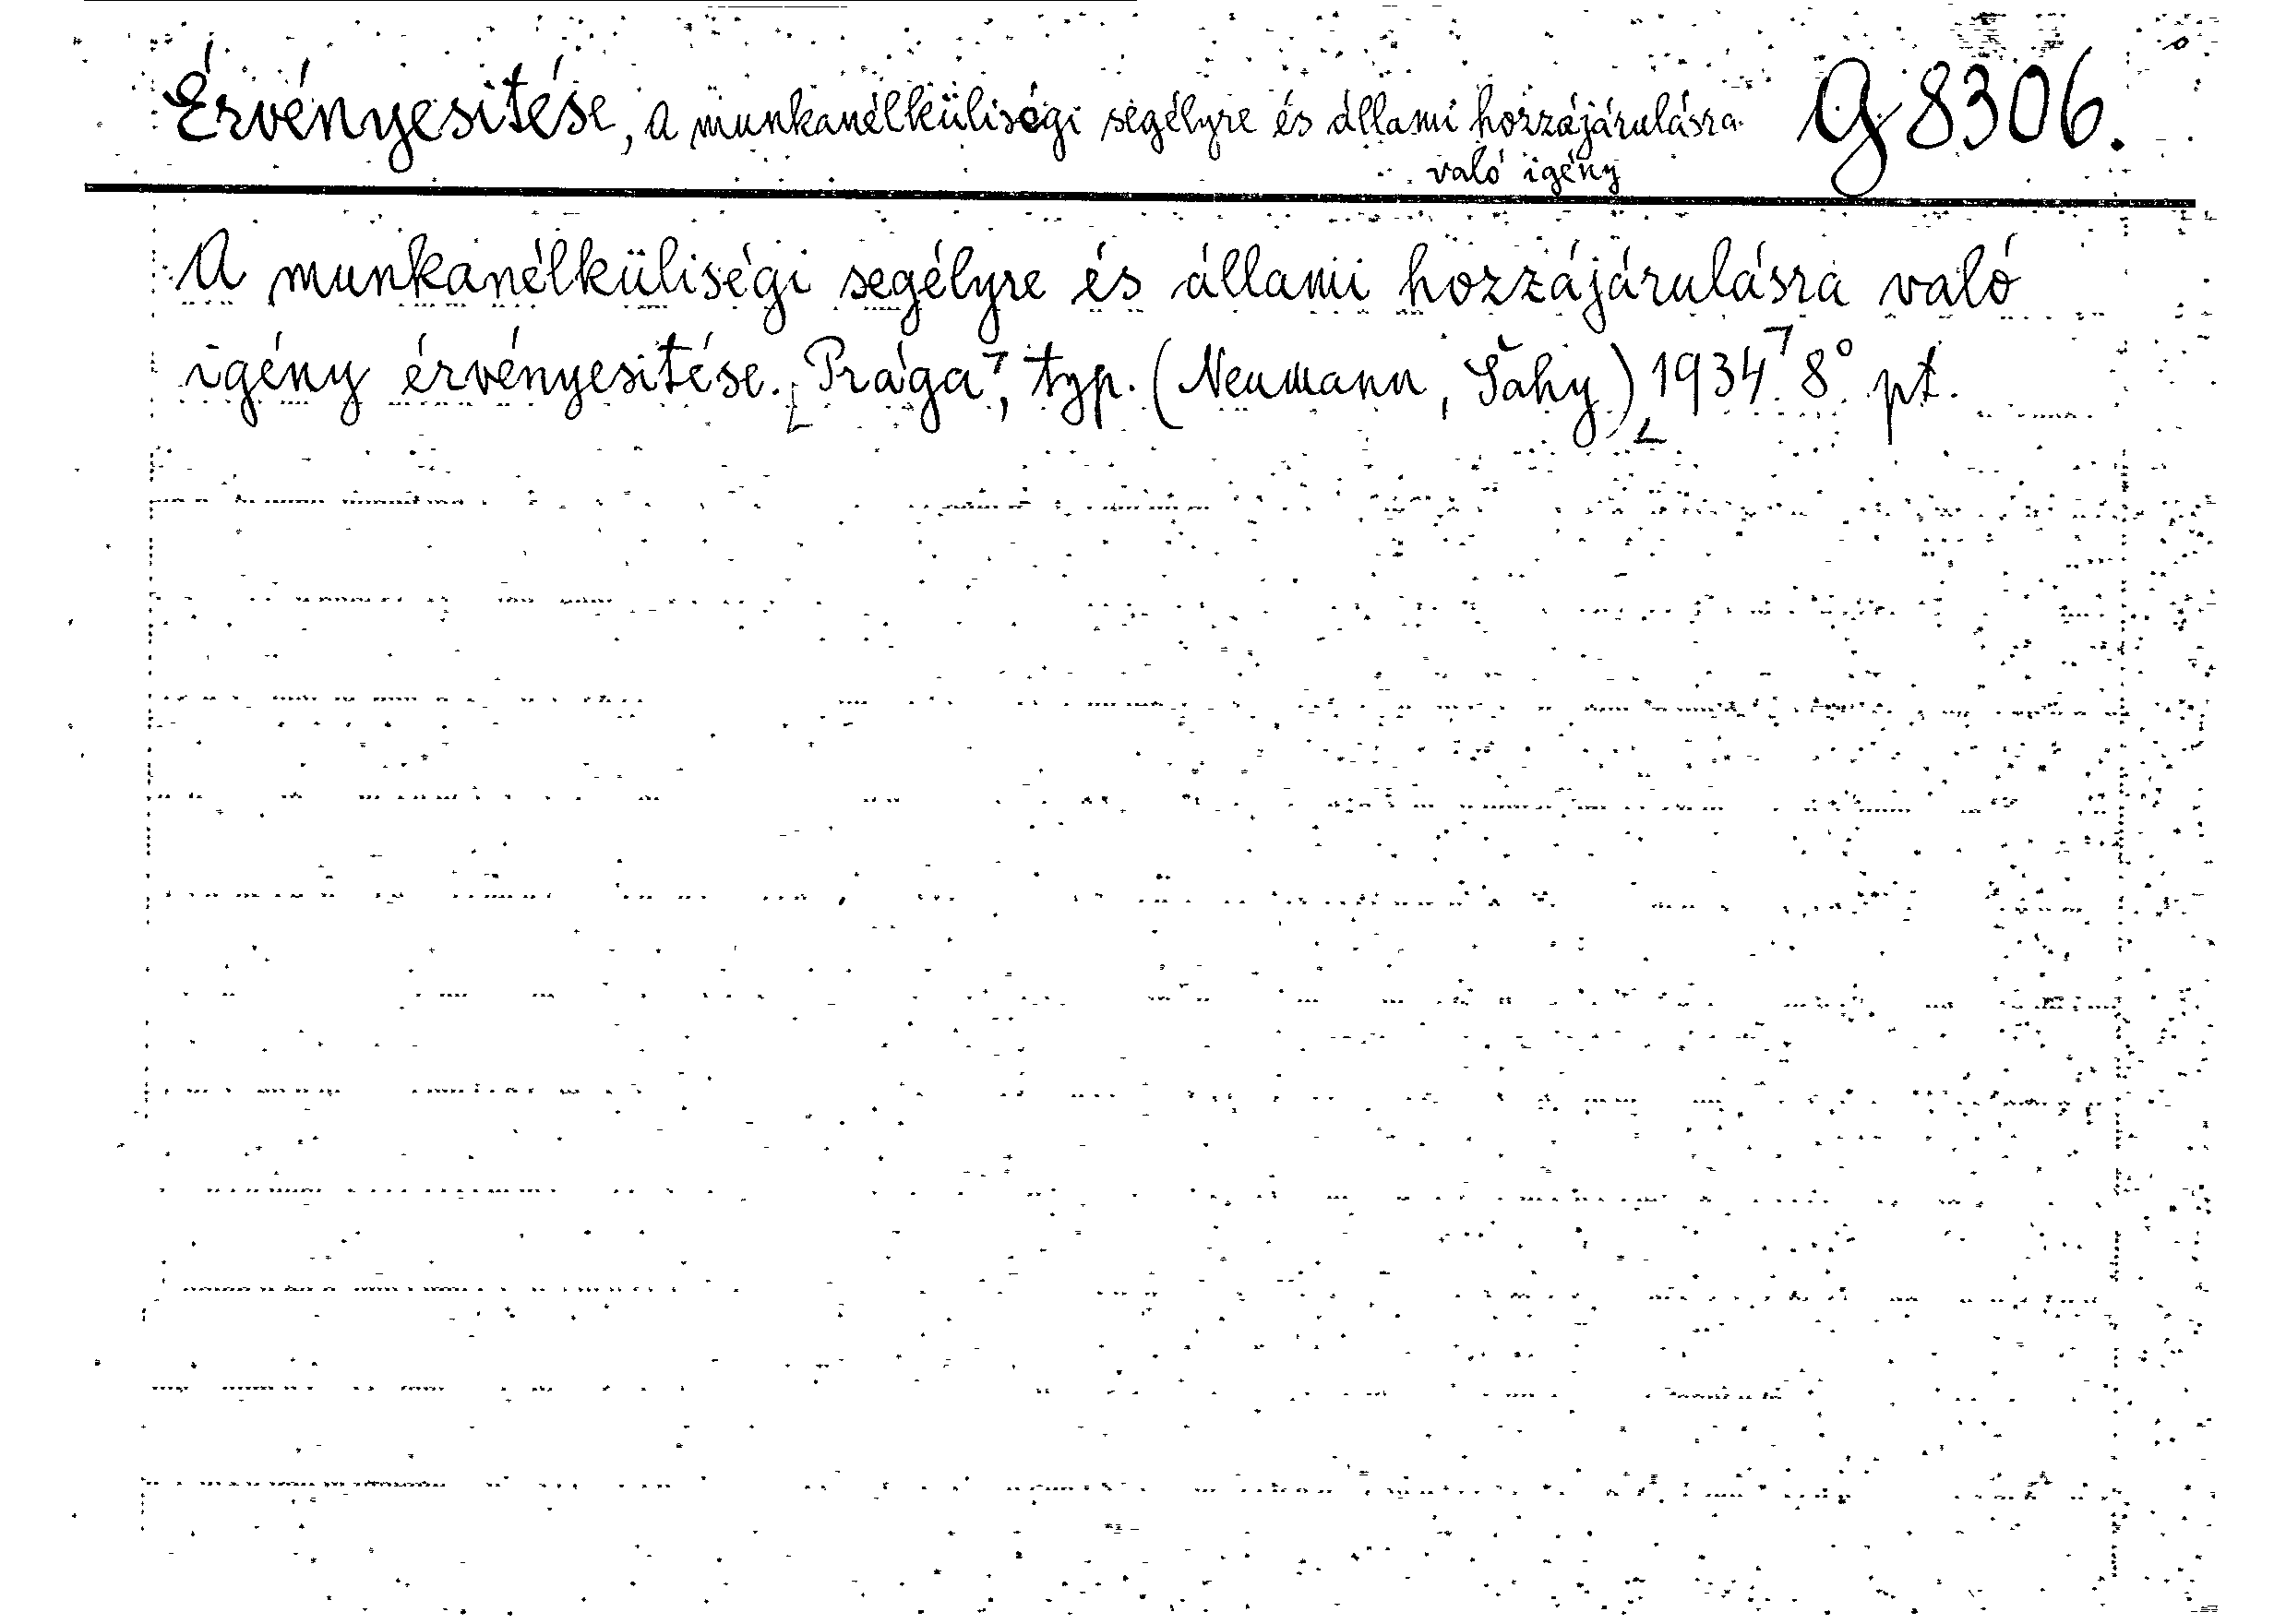 Érvényesitése, a munkanélküliségi segélyre és állami hozzájárulásra G 8306.
való igény
A munkanélküliségi segélyre és állami hozzájárulásra való
igény érvényesitése. [Prága], typ. (Neumann, Šahy) [1934] 8° pt.